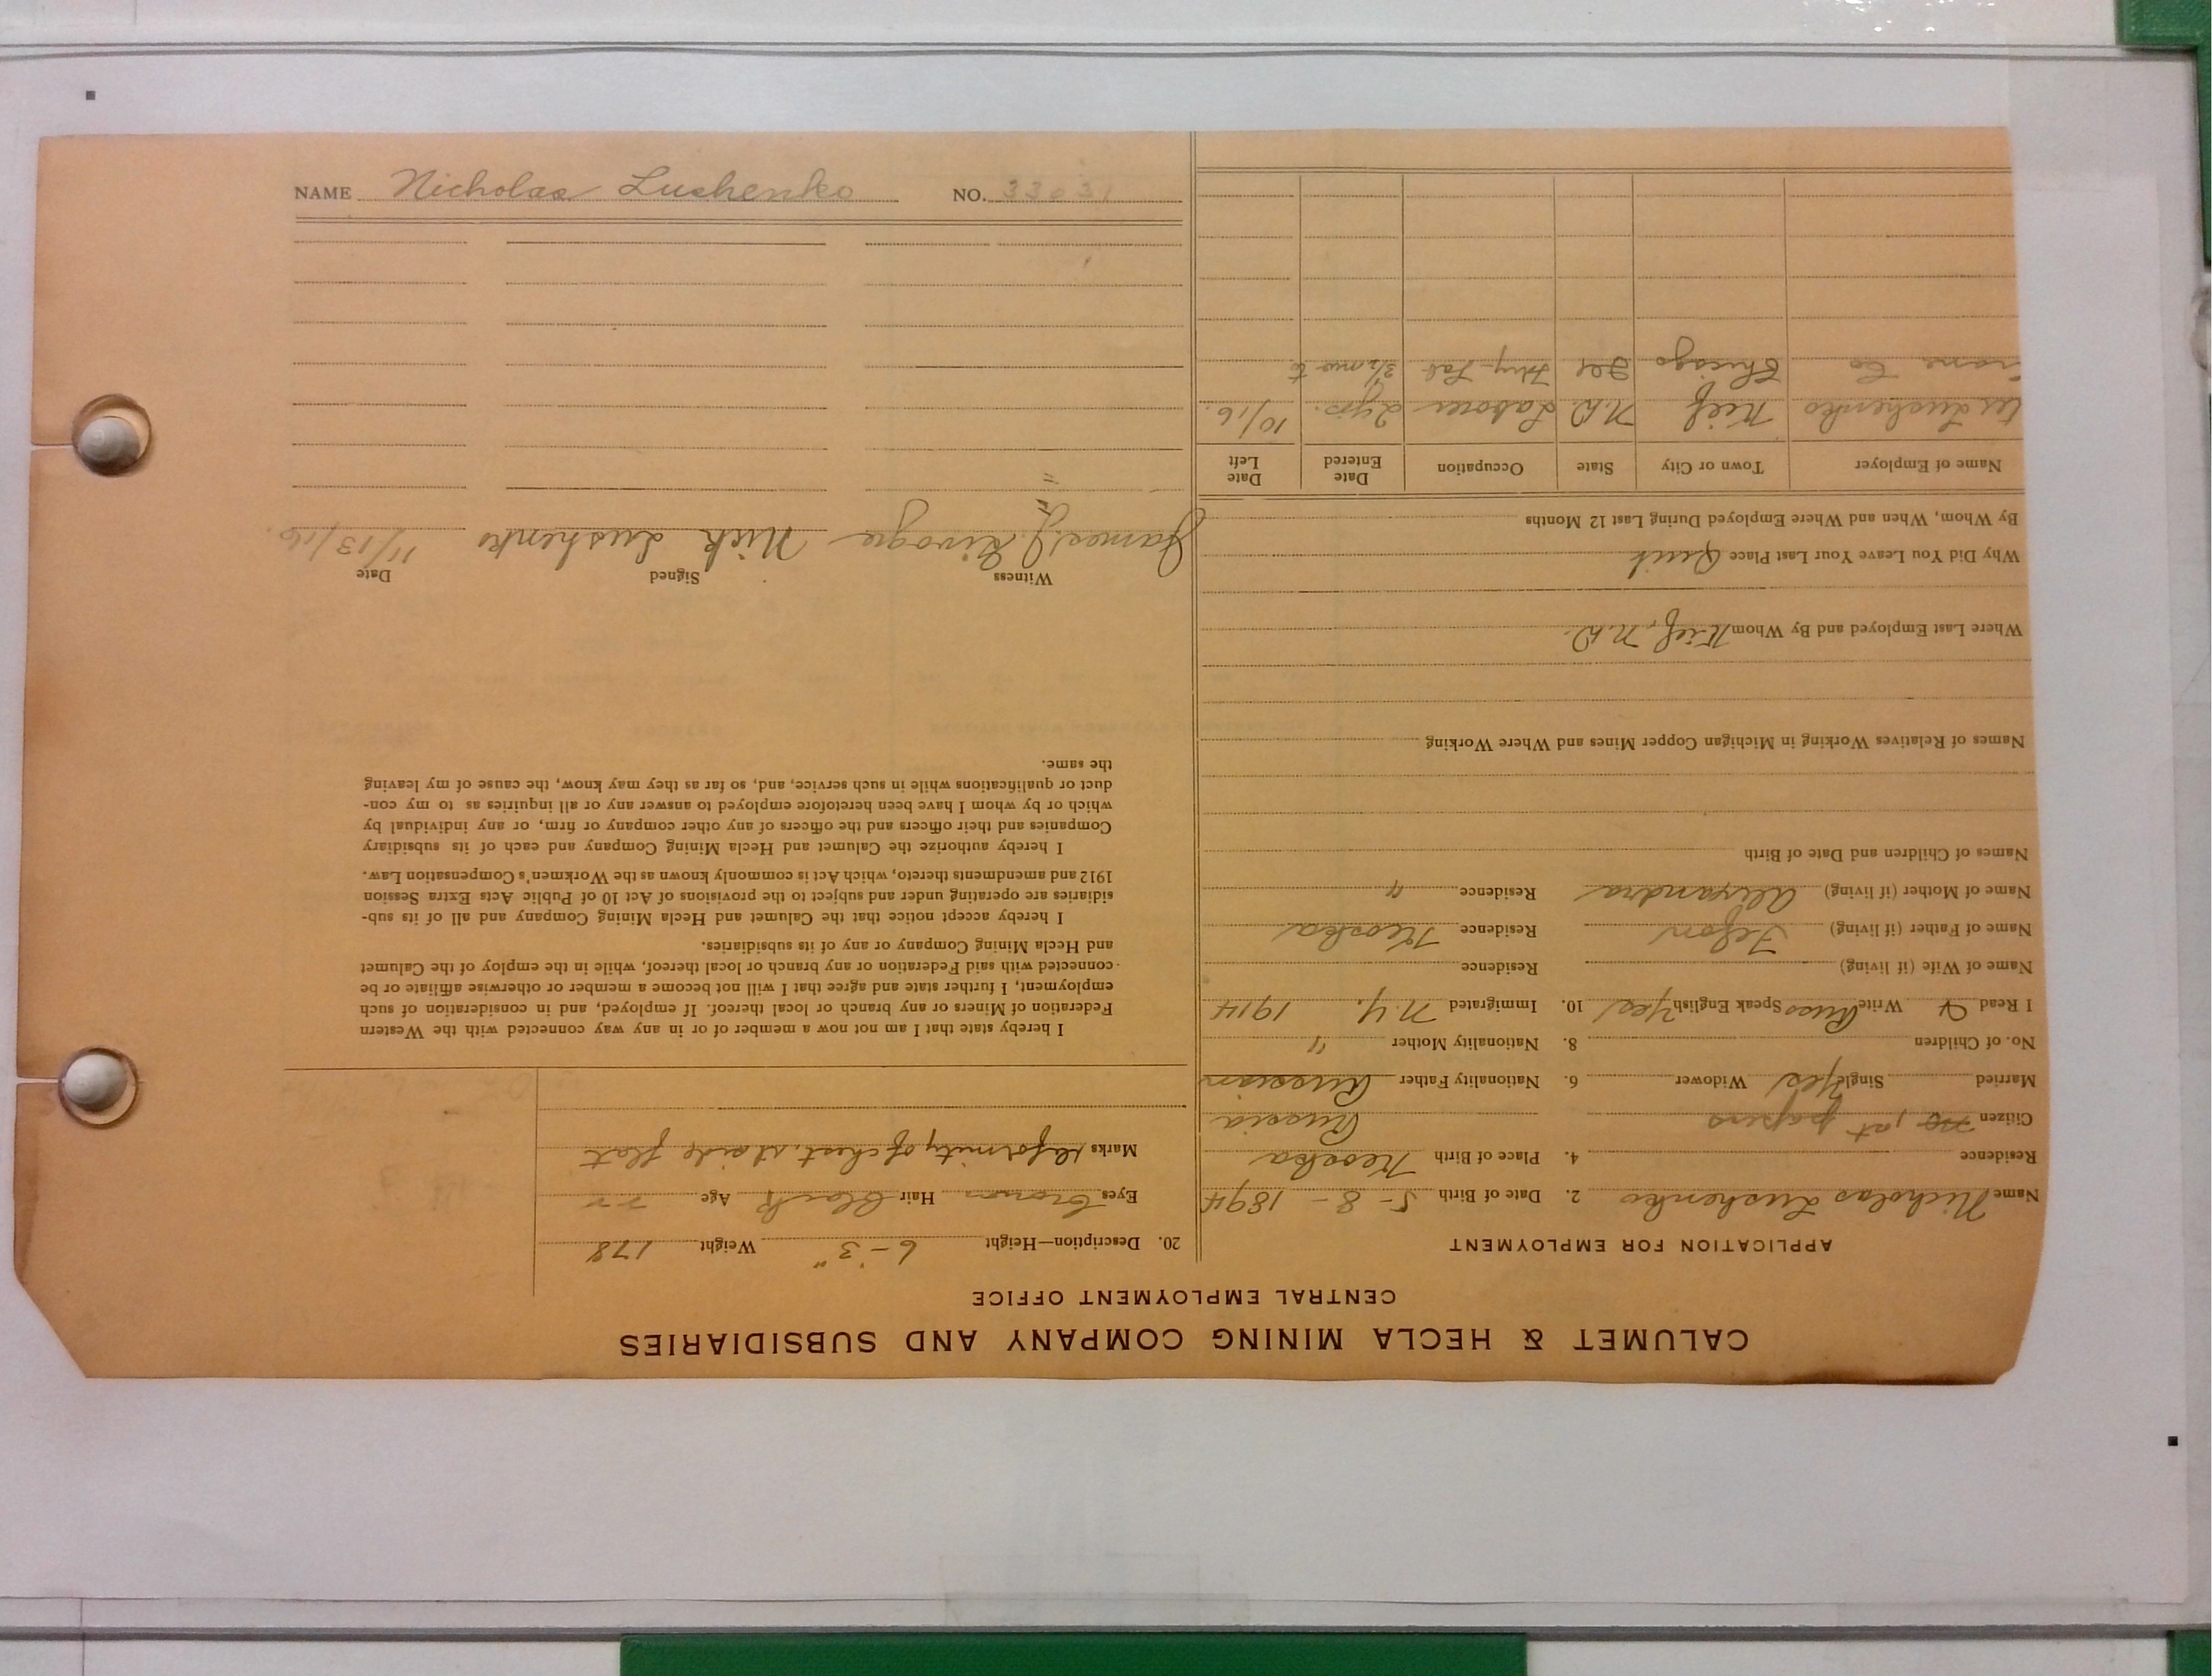 CALUMET & HECLA MINING COMPANY AND SUBSIDIARIES
CENTRAL EMPLOYMENT OFFICE
APPLICATION FOR EMPLOYMENT
Name Nicholas Lushenko 2. Date of Birth 5-8-1894
Residence 4. Place of Birth
Citizen no, papers Russia
Married Single Yes Widower 6. Nationality Father Russian
No. of Children 8. Nationality Mother "
I Read & Write Russ Speak English Yes 10. Immigrated N.Y. 1914
Name of Wife (if living) Residence
Name of Father (if living) Residence
Name of Mother (if living) Alexandra Residence "
Names of Children and Date of Birth
Names of Relatives Working in Michigan Copper Mines and Where Working
Where Last Employed and By Whom Kief, N.D.
Why Did You Leave Your Last Place Quit
By Whom, When and Where Employed During Last 12 Months
Name of Employer Town or City State Occupation Date Entered Date Left
Lushenko Kief N.D. Laborer 2 yrs. 10/16.
Co Chicago Ill Lab 3 1/2 mos
20. Description—Height 6-3" Weight 178
Eyes brown Hair black Age 22
Marks deformity of chest, side flat
I hereby state that I am not now a member of or in any way connected with the Western
Federation of Miners or any branch or local thereof. If employed, and in consideration of such
employment, I further state and agree that I will not become a member or otherwise affiliate or be
connected with said Federation or any branch or local thereof, while in the employ of the Calumet
and Hecla Mining Company or any of its subsidiaries.
I hereby accept notice that the Calumet and Hecla Mining Company and all of its sub-
sidiaries are operating under and subject to the provisions of Act 10 of Public Acts Extra Session
1912 and amendments thereto, which Act is commonly known as the Workmen's Compensation Law.
I hereby authorize the Calumet and Hecla Mining Company and each of its subsidiary
Companies and their officers and the officers of any other company or firm, or any individual by
which or by whom I have been heretofore employed to answer any or all inquiries as to my con-
duct or qualifications while in such service, and, so far as they may know, the cause of my leaving
the same.
Witness Signed Date
James Nick Lushenko 11/13/16.
NAME Nicholas Lushenko NO. 33031